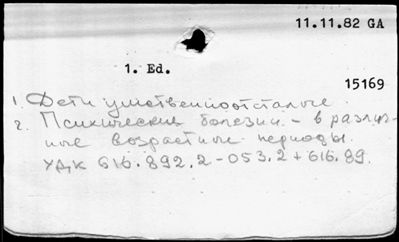 11.11.82 GA
1. Ed.
15169
1. Дети умственноотсталые.
2. Психические болезни – в различ-
ные возрастные периоды.
УДК 616.892.2-053.2+616.89.